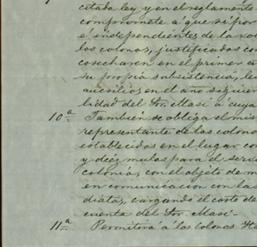 citada ley, y en el reglamento
compromete á que si por
é independientes de la vol
los colonos, justificados co
cosecharen en el primer a
su propia subsistencia, le
auxilios en el año siguien
lidad del Sr. Masi á cuya
10ª También se obliga el mis
representante de los colonos
establecidos en el lugar con
y diez mulas para el serv
colonia, con el objeto de m
en comunicacion con las
diatas, cargando el costo de
cuenta del Sr. Masi.
11ª Permitirá á los colonos